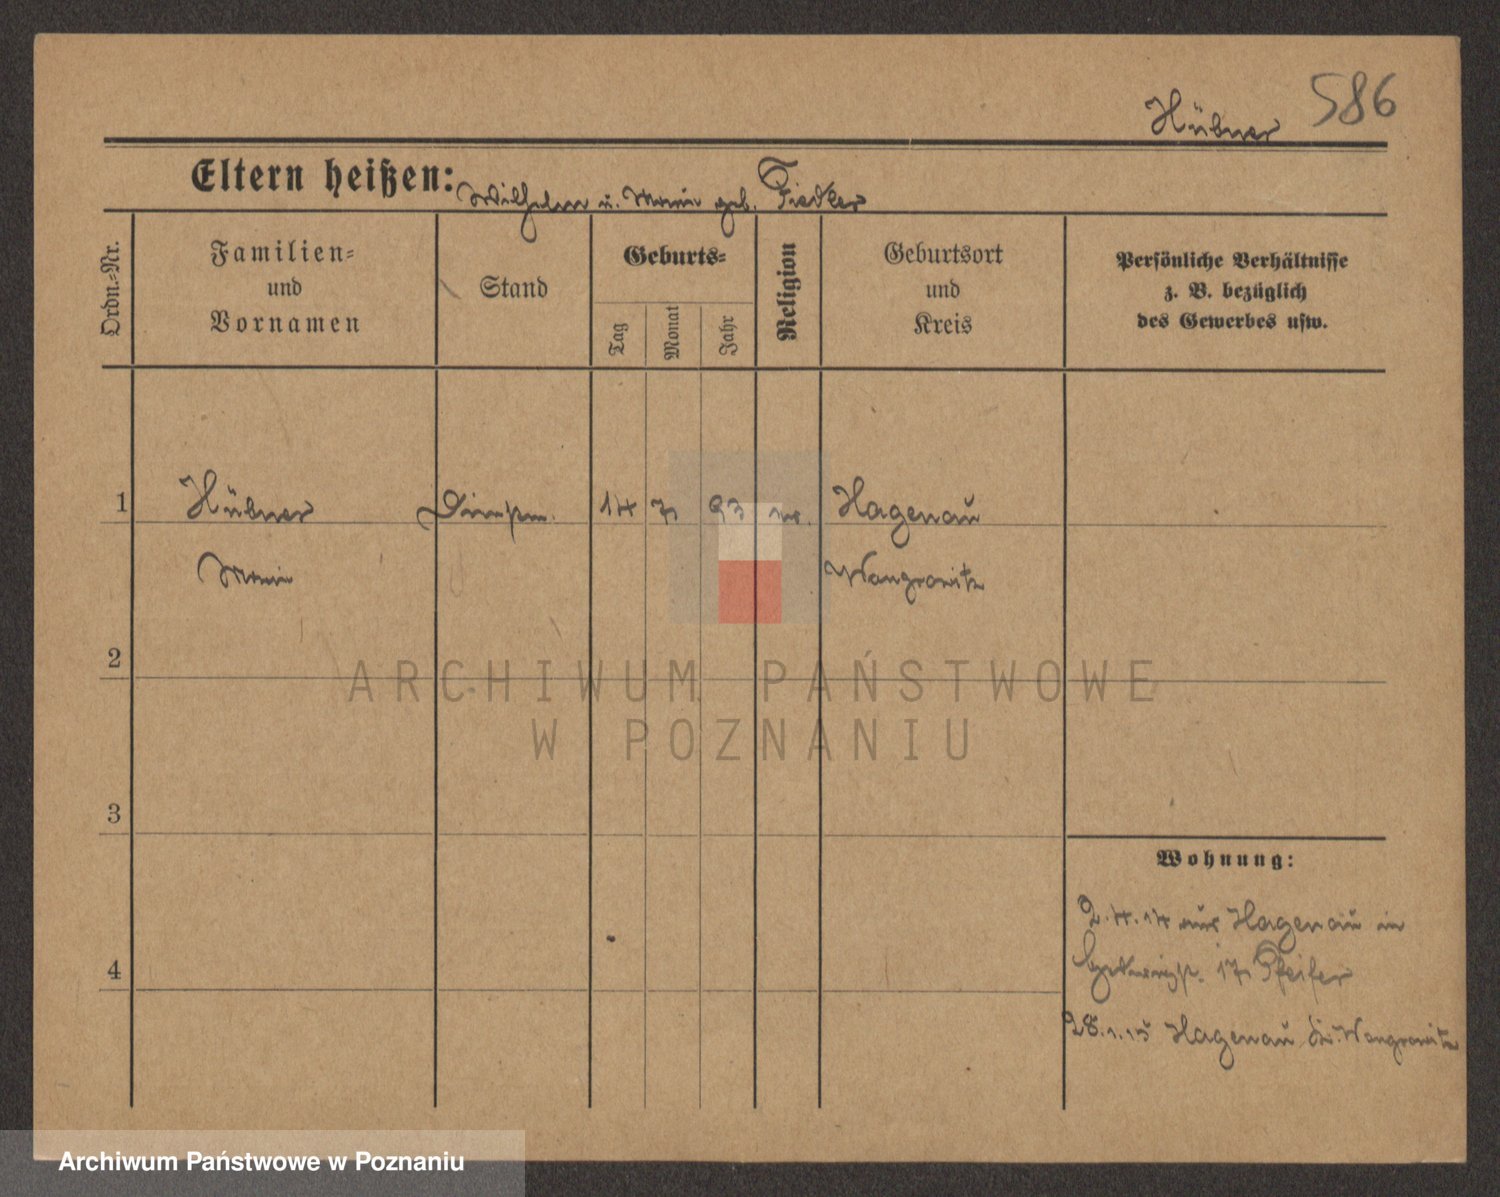 586
Hübner
Eltern heißen: Wilhelm u. Marie geb. Fiedler
Ordn.=Nr.
Familien=
und
Vornamen
Stand
Geburts=
Tag
Monat
Jahr
Religion
Geburtsort
und
Kreis
Persönliche Verhältnisse
z. B. bezüglich
des Gewerbes usw.
1 Hübner 14 7 93 Hagenau
Marie Wongrowitz
2
ARCHIWUM PAŃSTWOWE
W POZNANIU
3
Wohnung:
2.4.14 aus Hagenau in
4
17 Pfeifer
28.1.15 Hagenau Kr. Wongrowitz
Archiwum Państwowe w Poznaniu